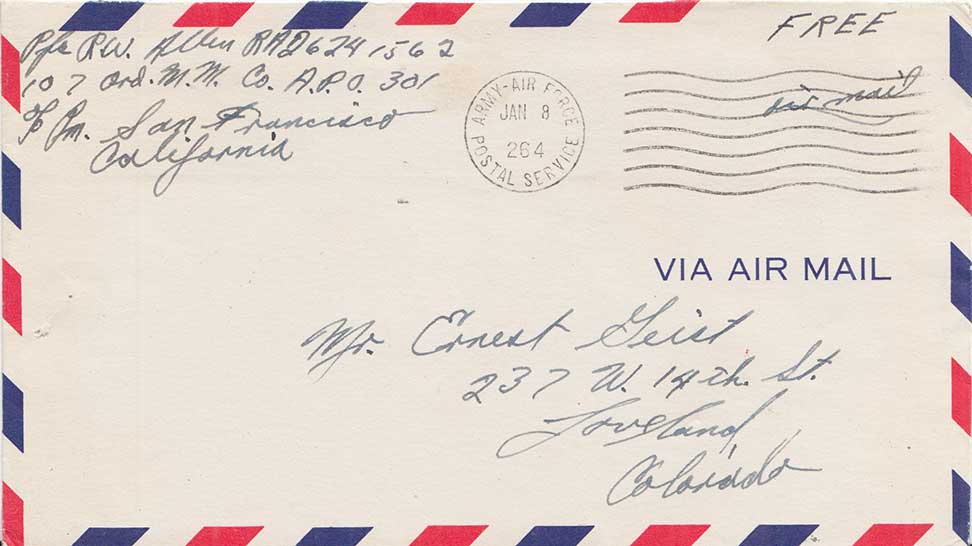 Pfc R.W. Allen RA26241562
107 Ord. M.M. Co. A.P.O. 301
% Pm. San Francisco
California
FREE
air mail
ARMY-AIR FORCE
JAN 8
264
POSTAL SERVICE
VIA AIR MAIL
Mr. Ernest Geist
237 W. 14th. St.
Loveland,
Colorado